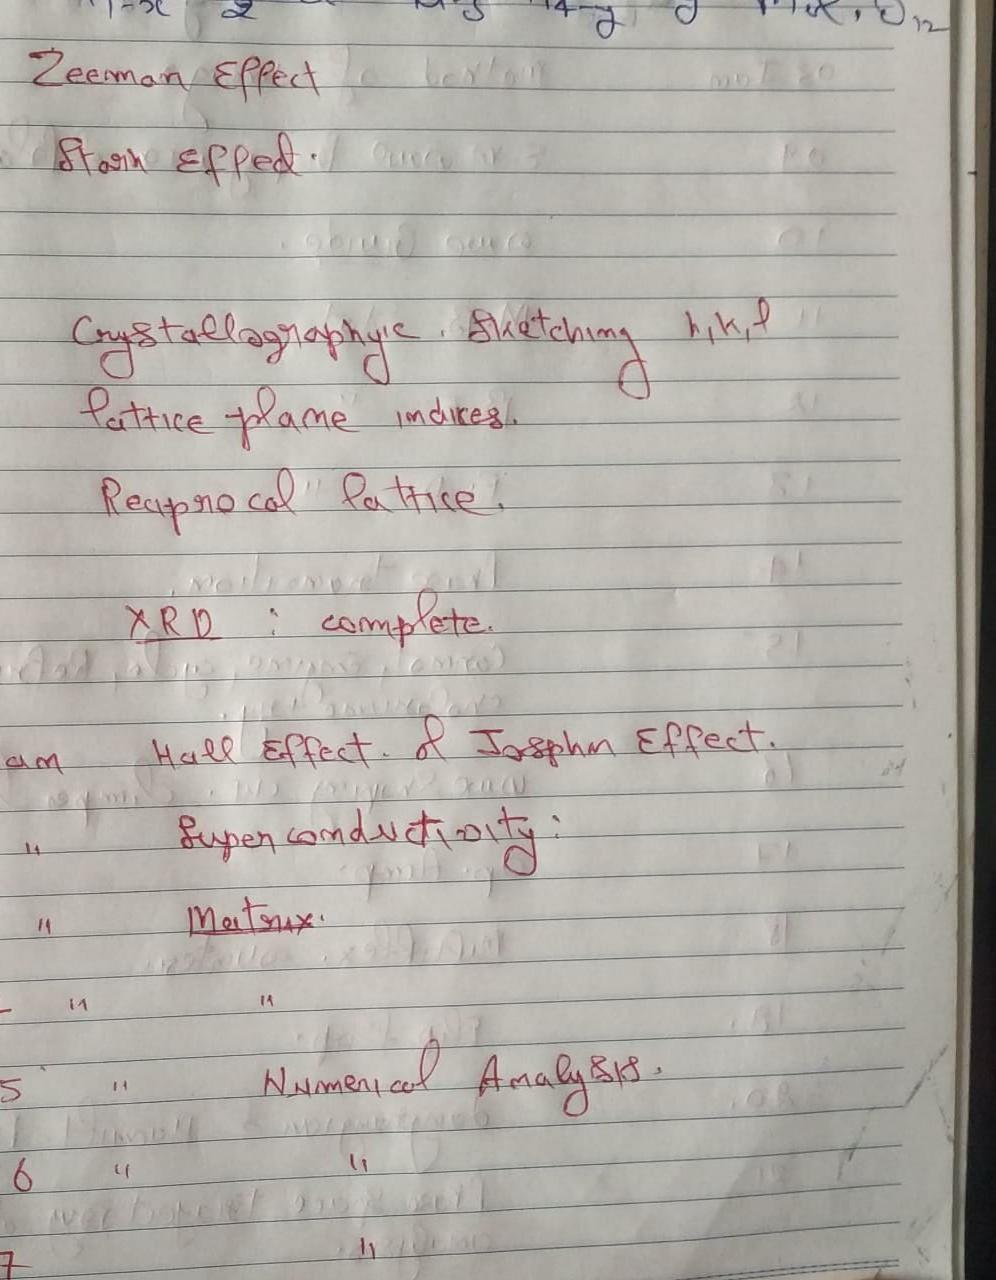 Zeeman Effect
Stark Effect.
Crystallographyic. Sketching h,k,l
lattice plane indices.
Reciprocal lattice.
XRD : complete.
am Hall Effect. & Josphn Effect.
" Superconductivity:
" Matrix.
" "
5 " Numerical Analysis.
6 " "
7 "